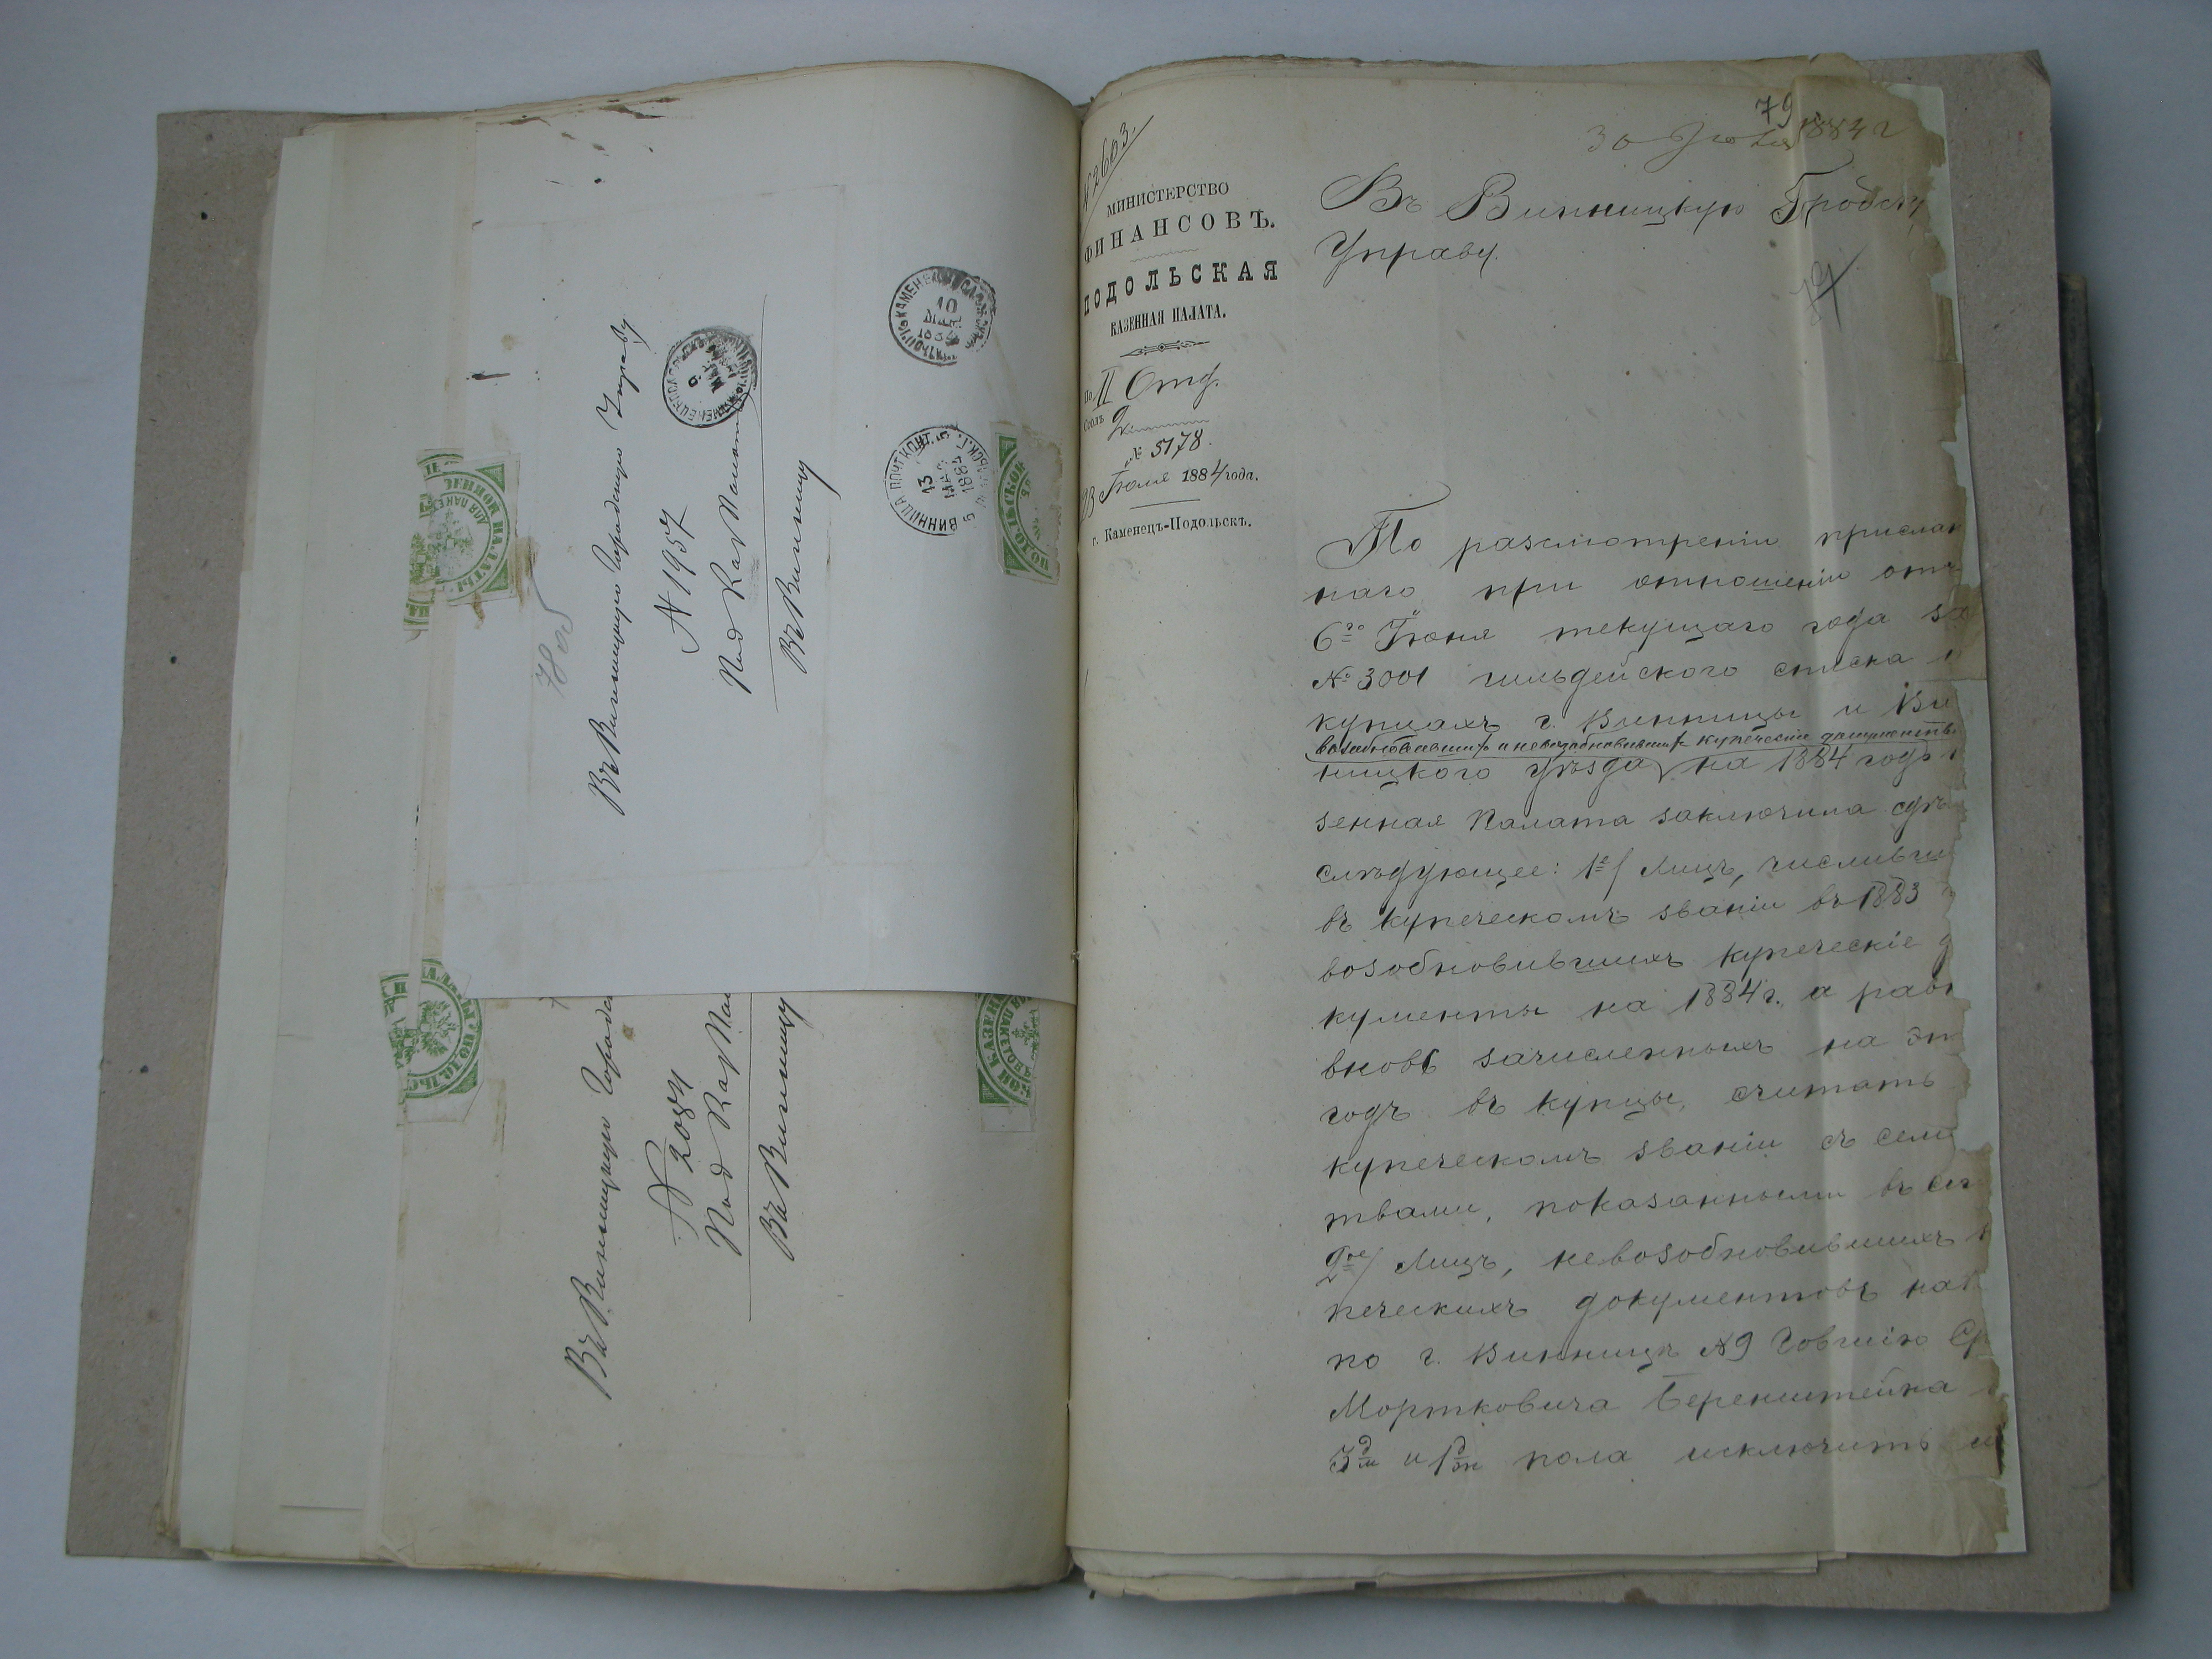 Въ Винницкую Городскую Управу
№ 1957
Под. Каз. Палаты
Въ Винницу
10
1884
13
1884
Въ Винницкую Городс
№ 2084
Под. Каз. Пал
Въ Винницу
№ 2663
79
30 Іюля 1884 г
МИНИСТЕРСТВО
ФИНАНСОВЪ.
ПОДОЛЬСКАЯ
КАЗЕННАЯ ПАЛАТА.
По II Отд.
Столъ 2
№ 5178.
23 Іюля 1884 года.
г. Каменецъ-Подольскъ.
Въ Винницкую Гродску
Управу.
По разсмотреніи прислан
наго при отношеніи отъ
6го Іюня текущаго года за
№ 3001 гильдейского списка о
купцахъ г. Винницы и Ви
возобновившихъ и невозобновившихъ купческіе документы
ницкого уѣзда на 1884 годъ
зенная Палата заключила сдѣ
слѣдующее: 1е/ Лицъ, числивши
въ купеческомъ званіи въ 1883
возобновившихъ купеческіе д
кументы на 1884 г. а равн
вновь зачисленныхъ на эт
годъ въ купцы, считать
купеческомъ званіи съ семе
твами, показанными въ сп
2ое/ Лицъ, невозобновившихъ к
печескихъ документовъ на
по г. Винницѣ №9 Говшію Ср
Мортковича Беренштейна
3 д. м. и 1 д. ж. пола исключить из